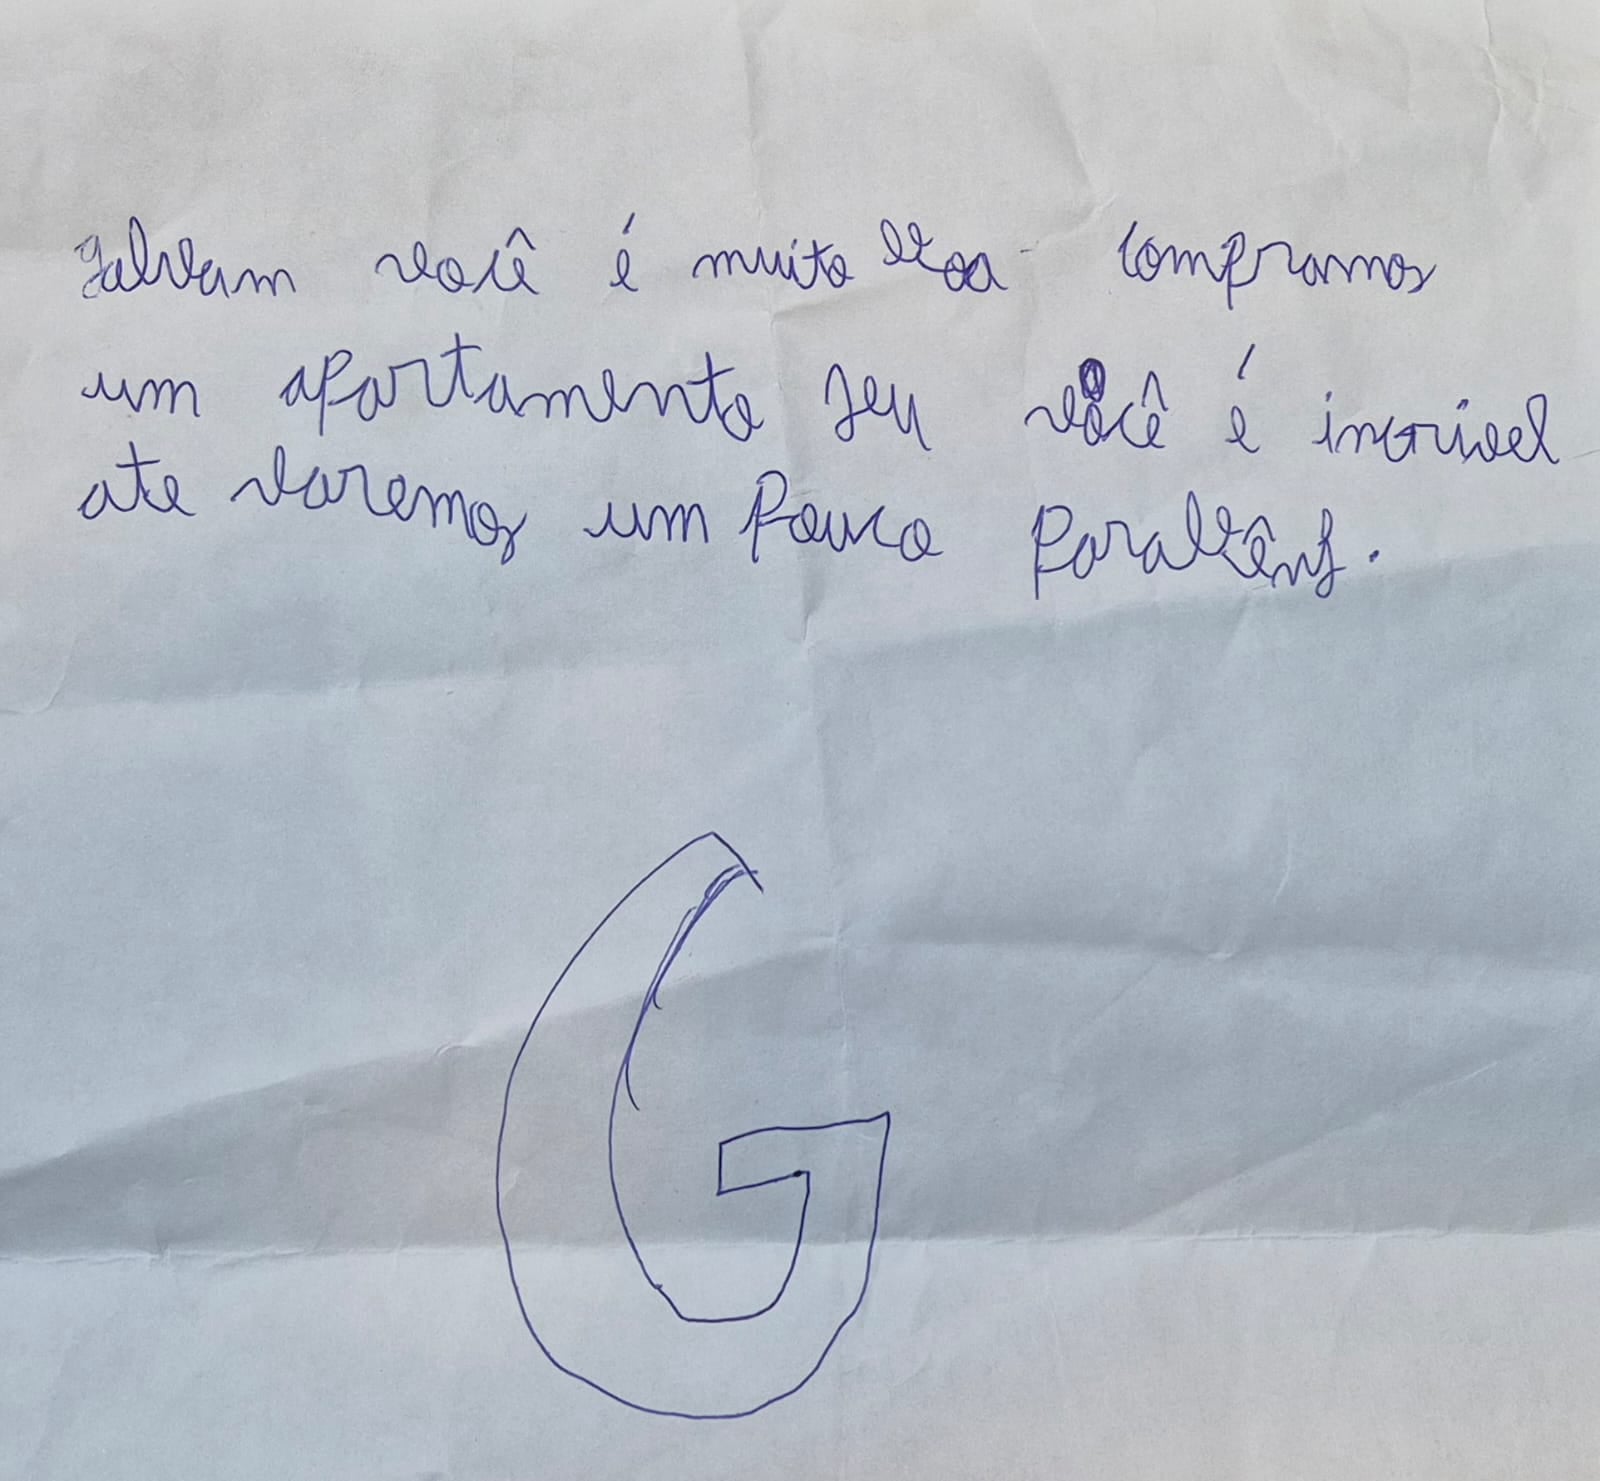 galvam você é muito boa compramos
um apartamento seu você é incrivel
ate varemos um pouco parabêns.
G